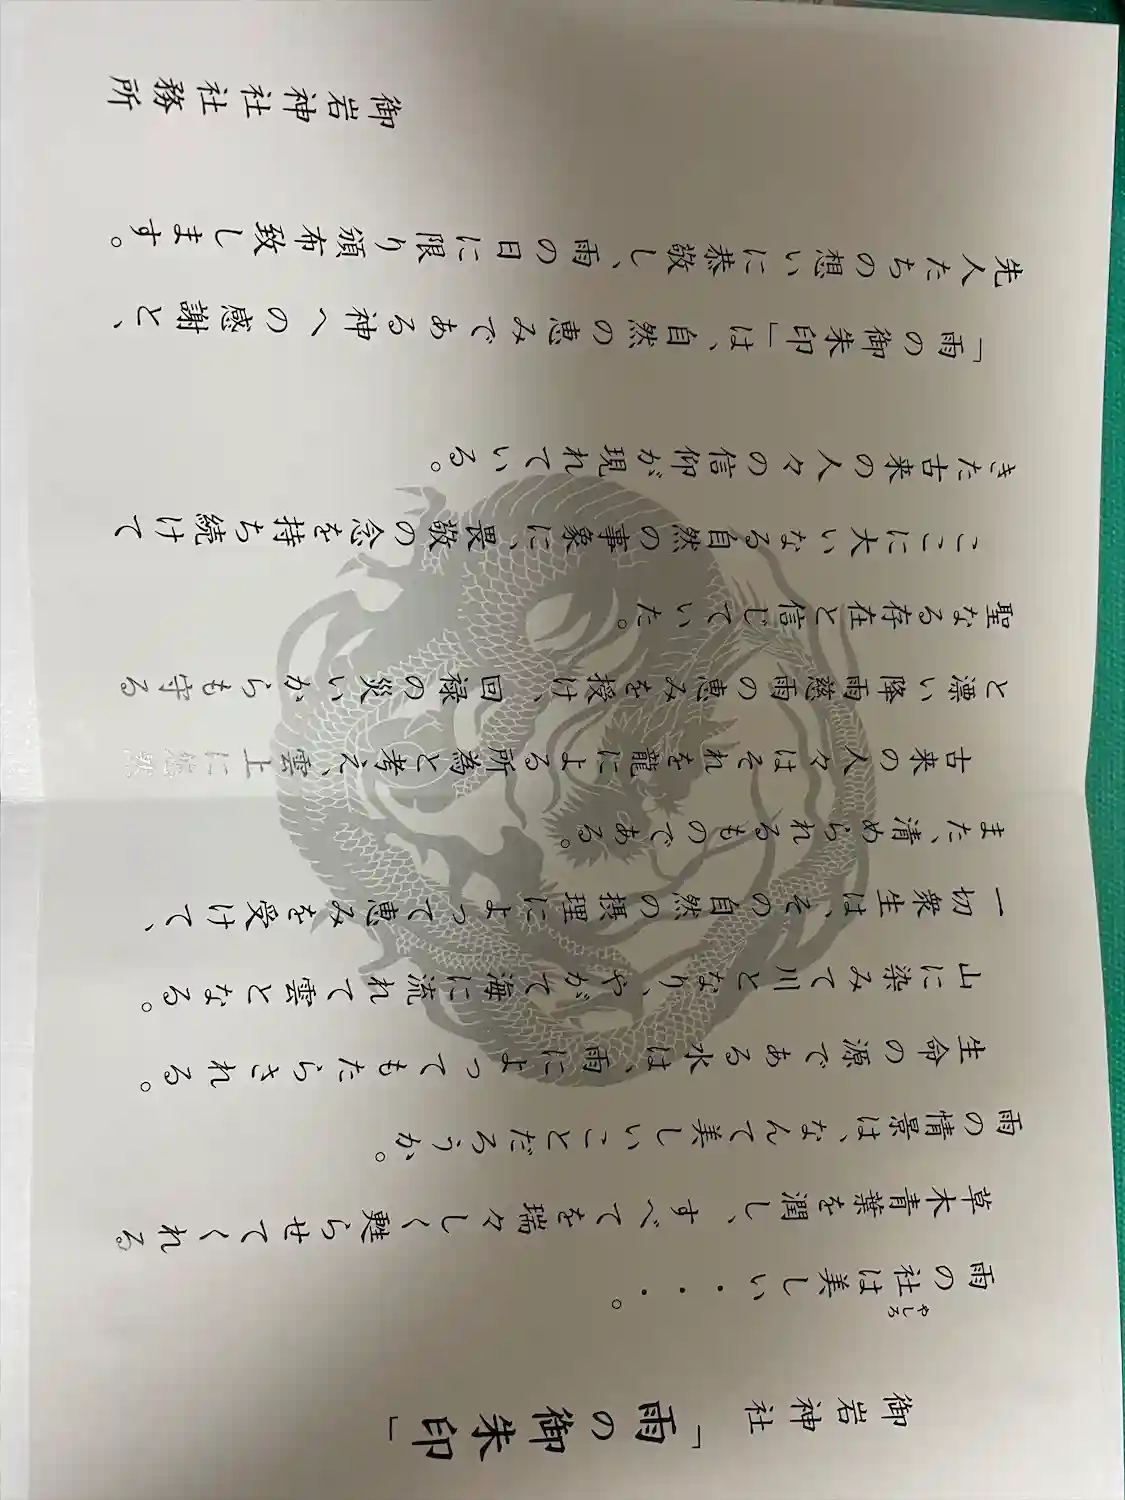 御岩神社
「雨の御朱印」
雨の社は美しい・・・。
やしろ
草木青葉を潤し、すべてを瑞々しく甦らせてくれる
雨の情景は、なんて美しいことだろうか。
生命の源である水は、雨によってもたらされる。
山に染みて川となり、やがて海に流れて雲となる。
一切衆生は、その自然の摂理によって恵みを受けて、
また、清められるものである。
古来の人々はそれを龍による所為と考え、雲上に悠然
と漂い降雨慈雨の恵みを授け、回禄の災いからも守る
聖なる存在と信じていた。
ここに大いなる自然の事象に、畏敬の念を持ち続けて
きた古来の人々の信仰が現れている。
「雨の御朱印」は、自然の恵みである神への感謝と、
先人たちの想いに恭敬し、雨の日に限り頒布致します。
御岩神社社務所